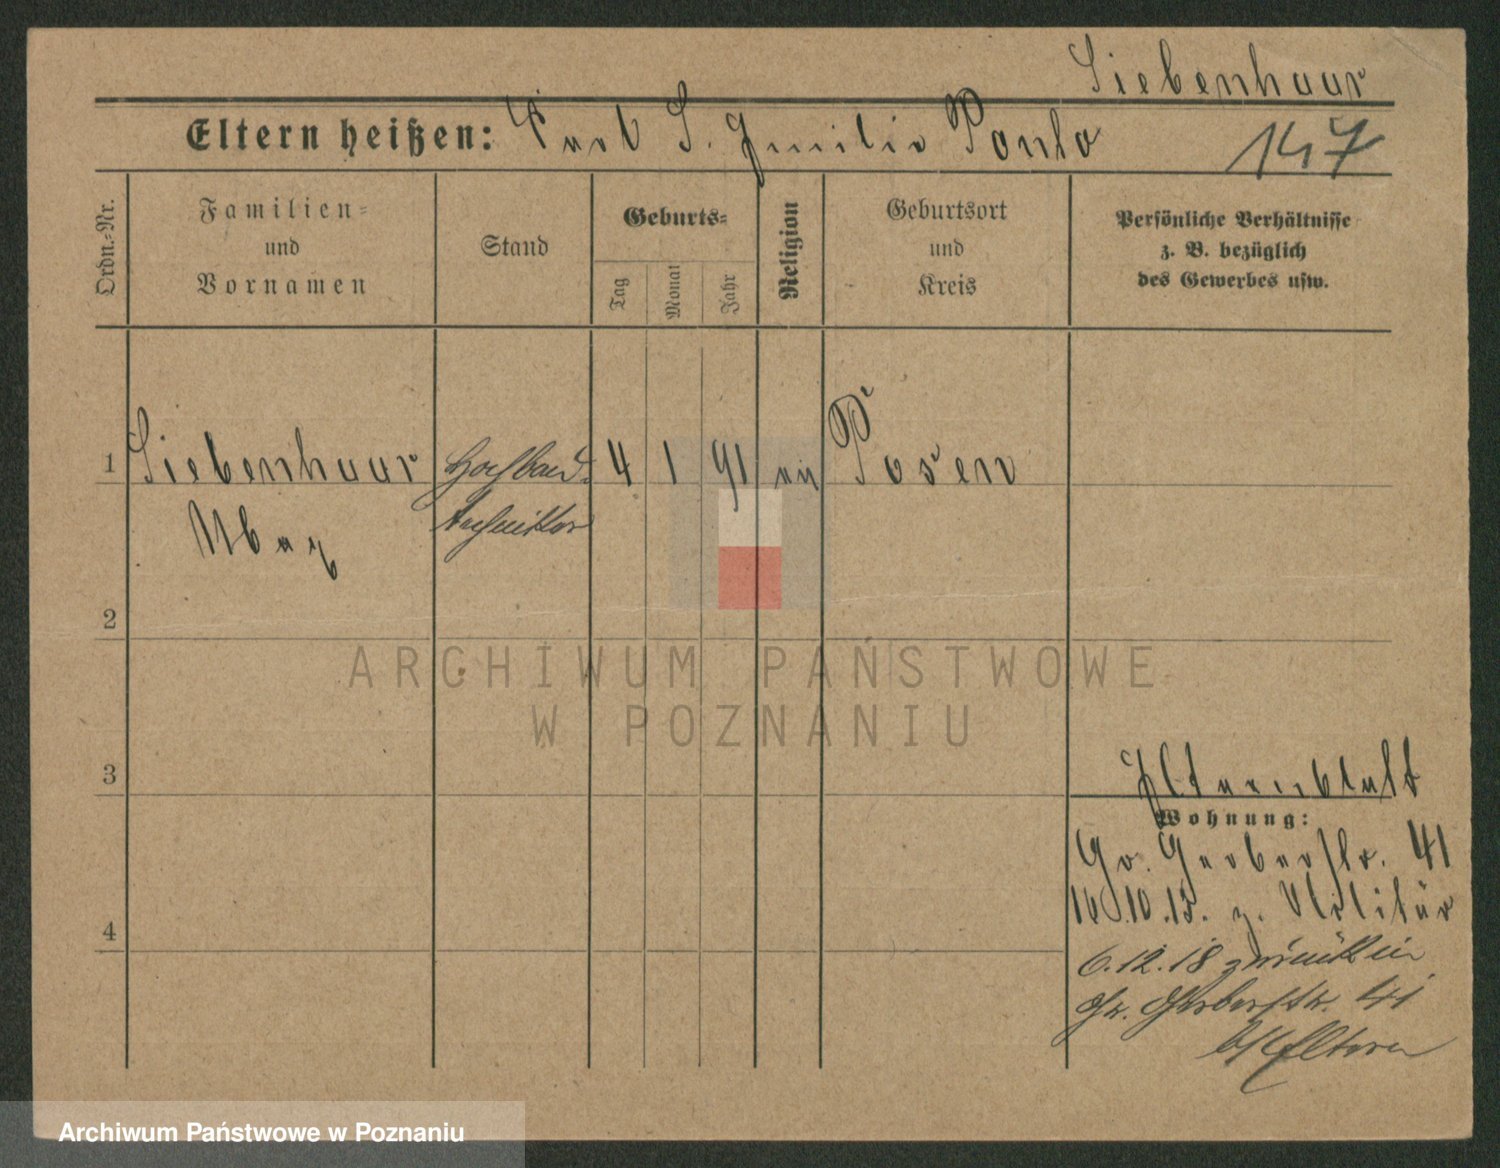 Siebenhaar
Eltern heißen: S. Emilie Paula
147
Ordn.-Nr.
Familien-
und
Vornamen
Stand
Geburts-
Tag
Monat
Jahr
Religion
Geburtsort
und
Kreis
Persönliche Verhältnisse
z. B. bezüglich
des Gewerbes usw.
1 Siebenhaar Hochbau- 4 1 91 Posen
Max Techniker
2
ARCHIWUM PAŃSTWOWE
W POZNANIU
3
Elternblatt
Wohnung:
Gr. Gerberstr. 41
16.10.15. z. Militär
4
6.12.18 zurück in
Gr. Gerberstr. 41
b/Eltern
Archiwum Państwowe w Poznaniu